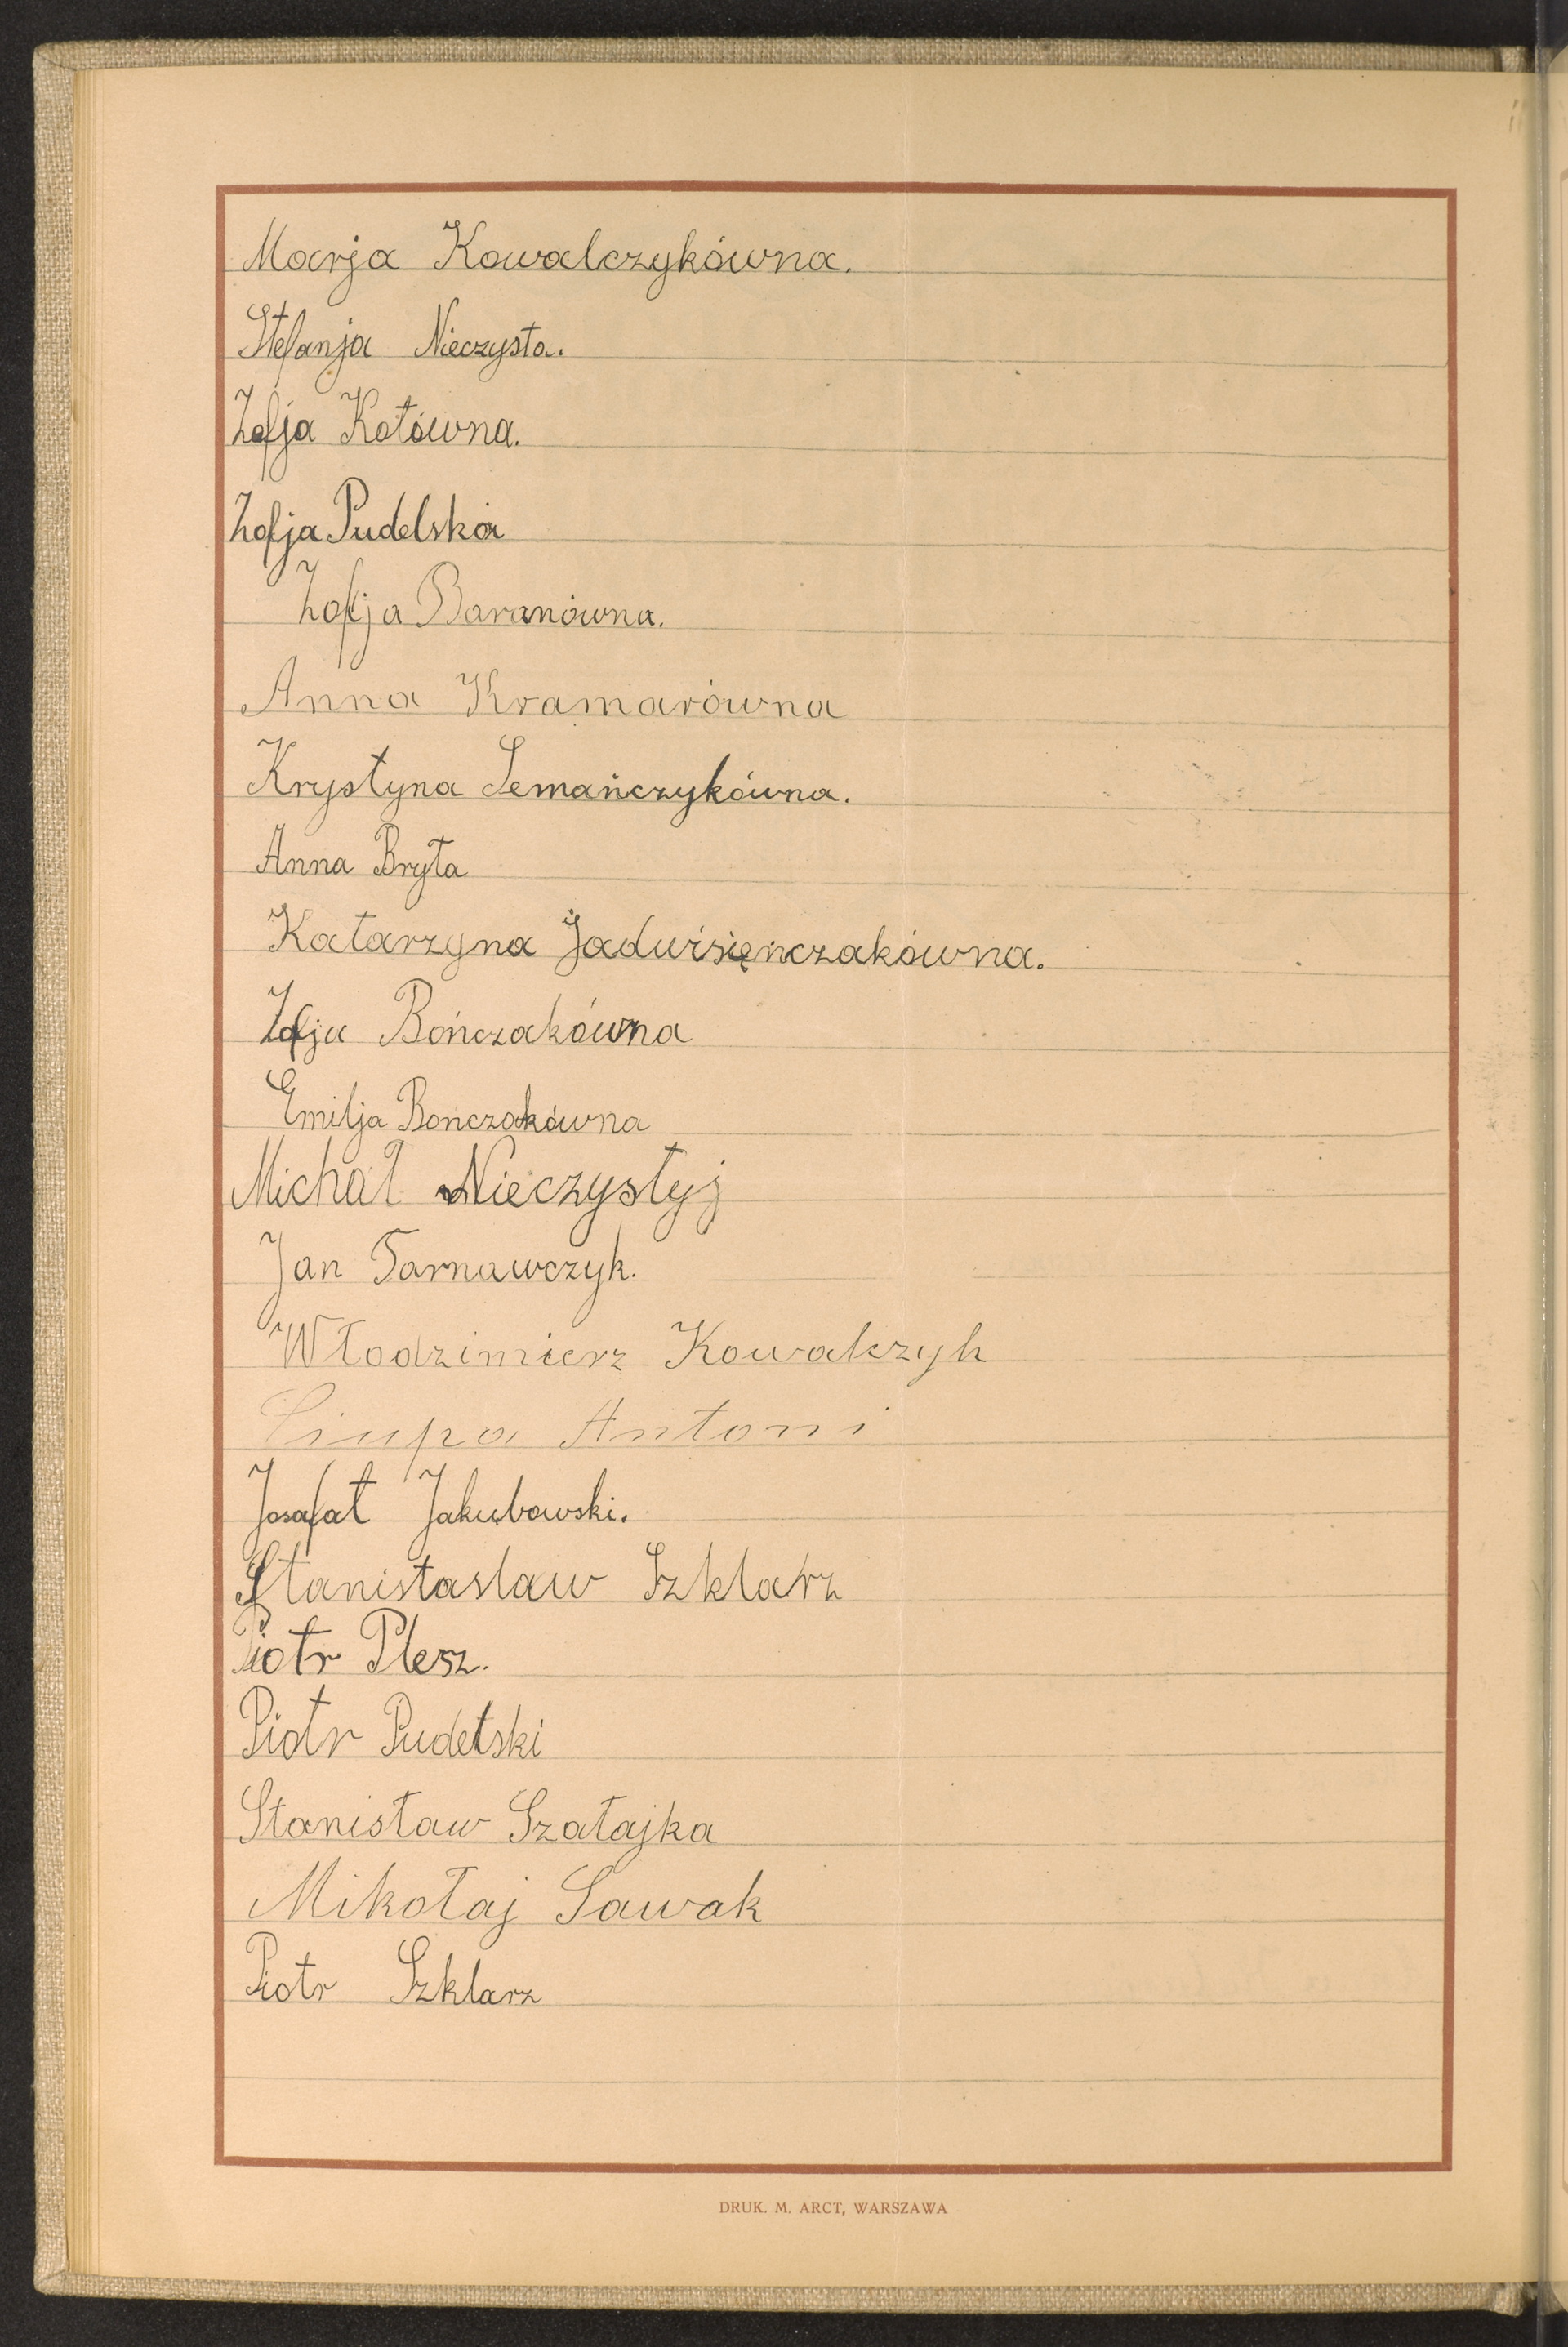 Marja Kowalczykówna.
Stefanja Nieczysta.
Zofja Kotówna.
Zofja Pudelska
Zofja Baranówna.
Anna Kramarówna
Krystyna Semańczykówna.
Anna Bryła
Katarzyna Jadwisięńczakówna.
Zofja Bończakówna
Emilja Bonczakówna
Michał Nieczystyj
Jan Tarnawczyk.
Włodzimierz Kowalczyk
Ciupa Antoni
Josafat Jakubowski.
Stanistaslaw Szklarz
Piotr Plesz.
Piotr Pudełski
Stanisław Szałajka
Mikołaj Sawak
Piotr Szklarz
DRUK. M. ARCT, WARSZAWA